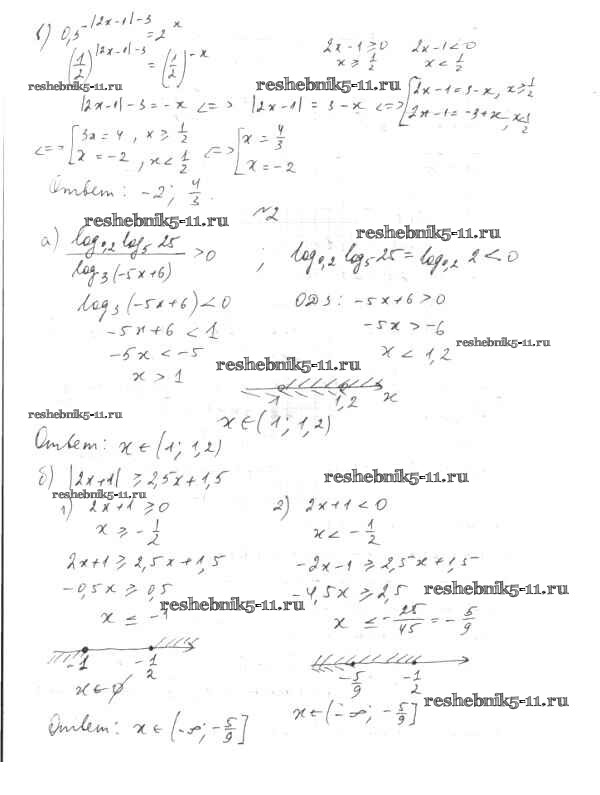 в) 0,5^{|2x-1|-3} = 2^x
2x-1≥0 2x-1<0
x≥1/2 x<1/2
(1/2)^{|2x-1|-3} = (1/2)^{-x}
reshebnik5-11.ru reshebnik5-11.ru
|2x-1|-3=-x <=> |2x-1|=3-x <=> [2x-1=3-x, x≥1/2
2x-1=-3+x, x<1/2
<=> [3x=4, x≥1/2 <=> [x=4/3
x=-2, x<1/2 x=-2
Ответ: -2; 4/3.
№2
reshebnik5-11.ru reshebnik5-11.ru
а) log_{0,2} log_5 25 / log_3(-5x+6) >0 ; log_{0,2} log_5 25 = log_{0,2} 2 < 0
log_3(-5x+6)<0 ОДЗ: -5x+6>0
-5x+6<1 -5x>-6
reshebnik5-11.ru
-5x<-5 x<1,2
reshebnik5-11.ru
x>1
1 1,2 x
reshebnik5-11.ru
x∈(1; 1,2)
Ответ: x∈(1; 1,2)
б) |2x+1|≥2,5x+1,5 reshebnik5-11.ru
reshebnik5-11.ru
1) 2x+1≥0 2) 2x+1<0
x≥-1/2 x<-1/2
2x+1≥2,5x+1,5 -2x-1≥2,5x+1,5
-0,5x≥0,5 -4,5x≥2,5 reshebnik5-11.ru
reshebnik5-11.ru
x≤-1 x≤-25/45=-5/9
-1 -1/2 -5/9 -1/2
x∈∅ x∈(-∞; -5/9] reshebnik5-11.ru
Ответ: x∈(-∞; -5/9]